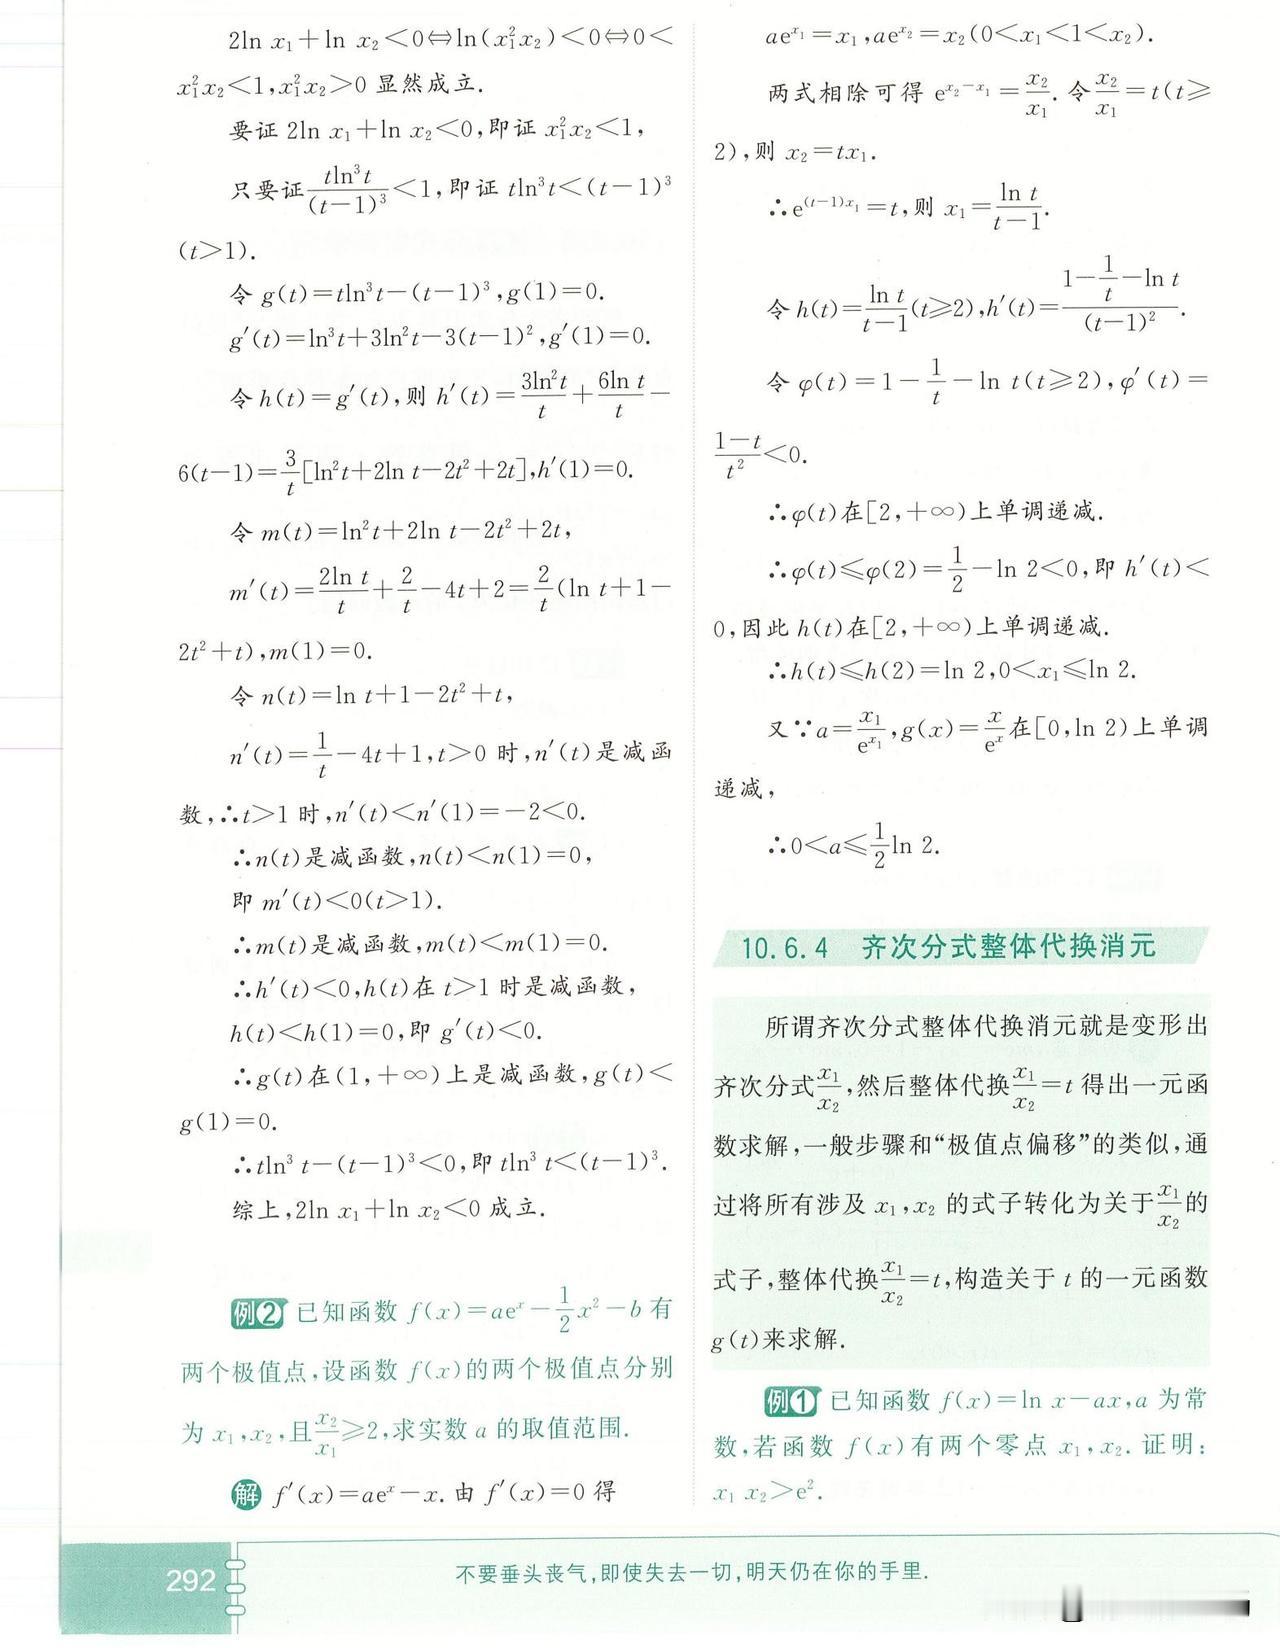 2ln x₁+ln x₂<0⇔ln(x₁²x₂)<0⇔0<
x₁²x₂<1,x₁²x₂>0 显然成立.
要证 2ln x₁+ln x₂<0,即证 x₁²x₂<1,
只要证 tln³t/(t−1)³<1,即证 tln³t<(t−1)³
(t>1).
令 g(t)=tln³t−(t−1)³,g(1)=0.
g′(t)=ln³t+3ln²t−3(t−1)²,g′(1)=0.
令 h(t)=g′(t),则 h′(t)=3ln²t/t+6ln t/t−
6(t−1)=3/t[ln²t+2ln t−2t²+2t],h′(1)=0.
令 m(t)=ln²t+2ln t−2t²+2t,
m′(t)=2ln t/t+2/t−4t+2=2/t(ln t+1−
2t²+t),m(1)=0.
令 n(t)=ln t+1−2t²+t,
n′(t)=1/t−4t+1,t>0 时,n′(t)是减函
数,∴t>1 时,n′(t)<n′(1)=−2<0.
∴n(t)是减函数,n(t)<n(1)=0,
即 m′(t)<0(t>1).
∴m(t)是减函数,m(t)<m(1)=0.
∴h′(t)<0,h(t)在 t>1 时是减函数,
h(t)<h(1)=0,即 g′(t)<0.
∴g(t)在(1,+∞)上是减函数,g(t)<
g(1)=0.
∴tln³ t−(t−1)³<0,即 tln³ t<(t−1)³.
综上,2ln x₁+ln x₂<0 成立.
例2 已知函数 f(x)=aeˣ−1/2x²−b 有
两个极值点,设函数 f(x)的两个极值点分别
为 x₁,x₂,且x₂/x₁≥2,求实数 a 的取值范围.
解 f′(x)=aeˣ−x.由 f′(x)=0 得
ae^{x₁}=x₁,ae^{x₂}=x₂(0<x₁<1<x₂).
两式相除可得 e^{x₂−x₁}=x₂/x₁.令x₂/x₁=t(t≥
2),则 x₂=tx₁.
∴e^{(t−1)x₁}=t,则 x₁=ln t/(t−1).
令 h(t)=ln t/(t−1)(t≥2),h′(t)=(1−1/t−ln t)/(t−1)².
令 φ(t)=1−1/t−ln t(t≥2),φ′(t)=
(1−t)/t²<0.
∴φ(t)在[2,+∞)上单调递减.
∴φ(t)≤φ(2)=1/2−ln 2<0,即 h′(t)<
0,因此 h(t)在[2,+∞)上单调递减.
∴h(t)≤h(2)=ln 2,0<x₁≤ln 2.
又∵a=x₁/e^{x₁},g(x)=x/eˣ在[0,ln 2)上单调
递减,
∴0<a≤1/2ln 2.
10.6.4 齐次分式整体代换消元
所谓齐次分式整体代换消元就是变形出
齐次分式x₁/x₂,然后整体代换x₁/x₂=t 得出一元函
数求解,一般步骤和“极值点偏移”的类似,通
过将所有涉及 x₁,x₂ 的式子转化为关于x₁/x₂的
式子,整体代换x₁/x₂=t,构造关于 t 的一元函数
g(t)来求解.
例1 已知函数 f(x)=ln x−ax,a 为常
数,若函数 f(x)有两个零点 x₁,x₂.证明:
x₁ x₂>e².
292
不要垂头丧气,即使失去一切,明天仍在你的手里.